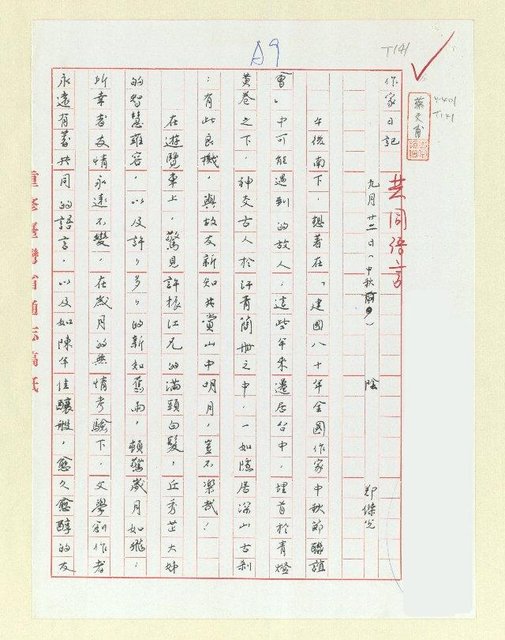 A9
T141
4-401
T141
蔡文甫
作家日記
共同語言
九月廿二日（中秋前夕） 陰 鄭傑光
午後南下，想著在「建國八十年全國作家中秋節聯誼
會」中可能遇到的故人。這些年來遷居台中，埋首於青燈
黃卷之下，神交古人於汗青簡冊之中，一如隱居深山古剎
；有此良機，與故友新知共賞山中明月，豈不樂哉！
在遊覽車上，驚見許振江兄的滿頭白髮，丘秀芷大姊
的智慧雍容，以及許許多多的新知舊雨，頓驚歲月如飛，
所幸者友情永遠不變，在歲月的無情考驗下，文學創作者
永遠有著共同的語言，以及如陳年佳釀般，愈久愈醇的友
重修臺灣省通志高紙